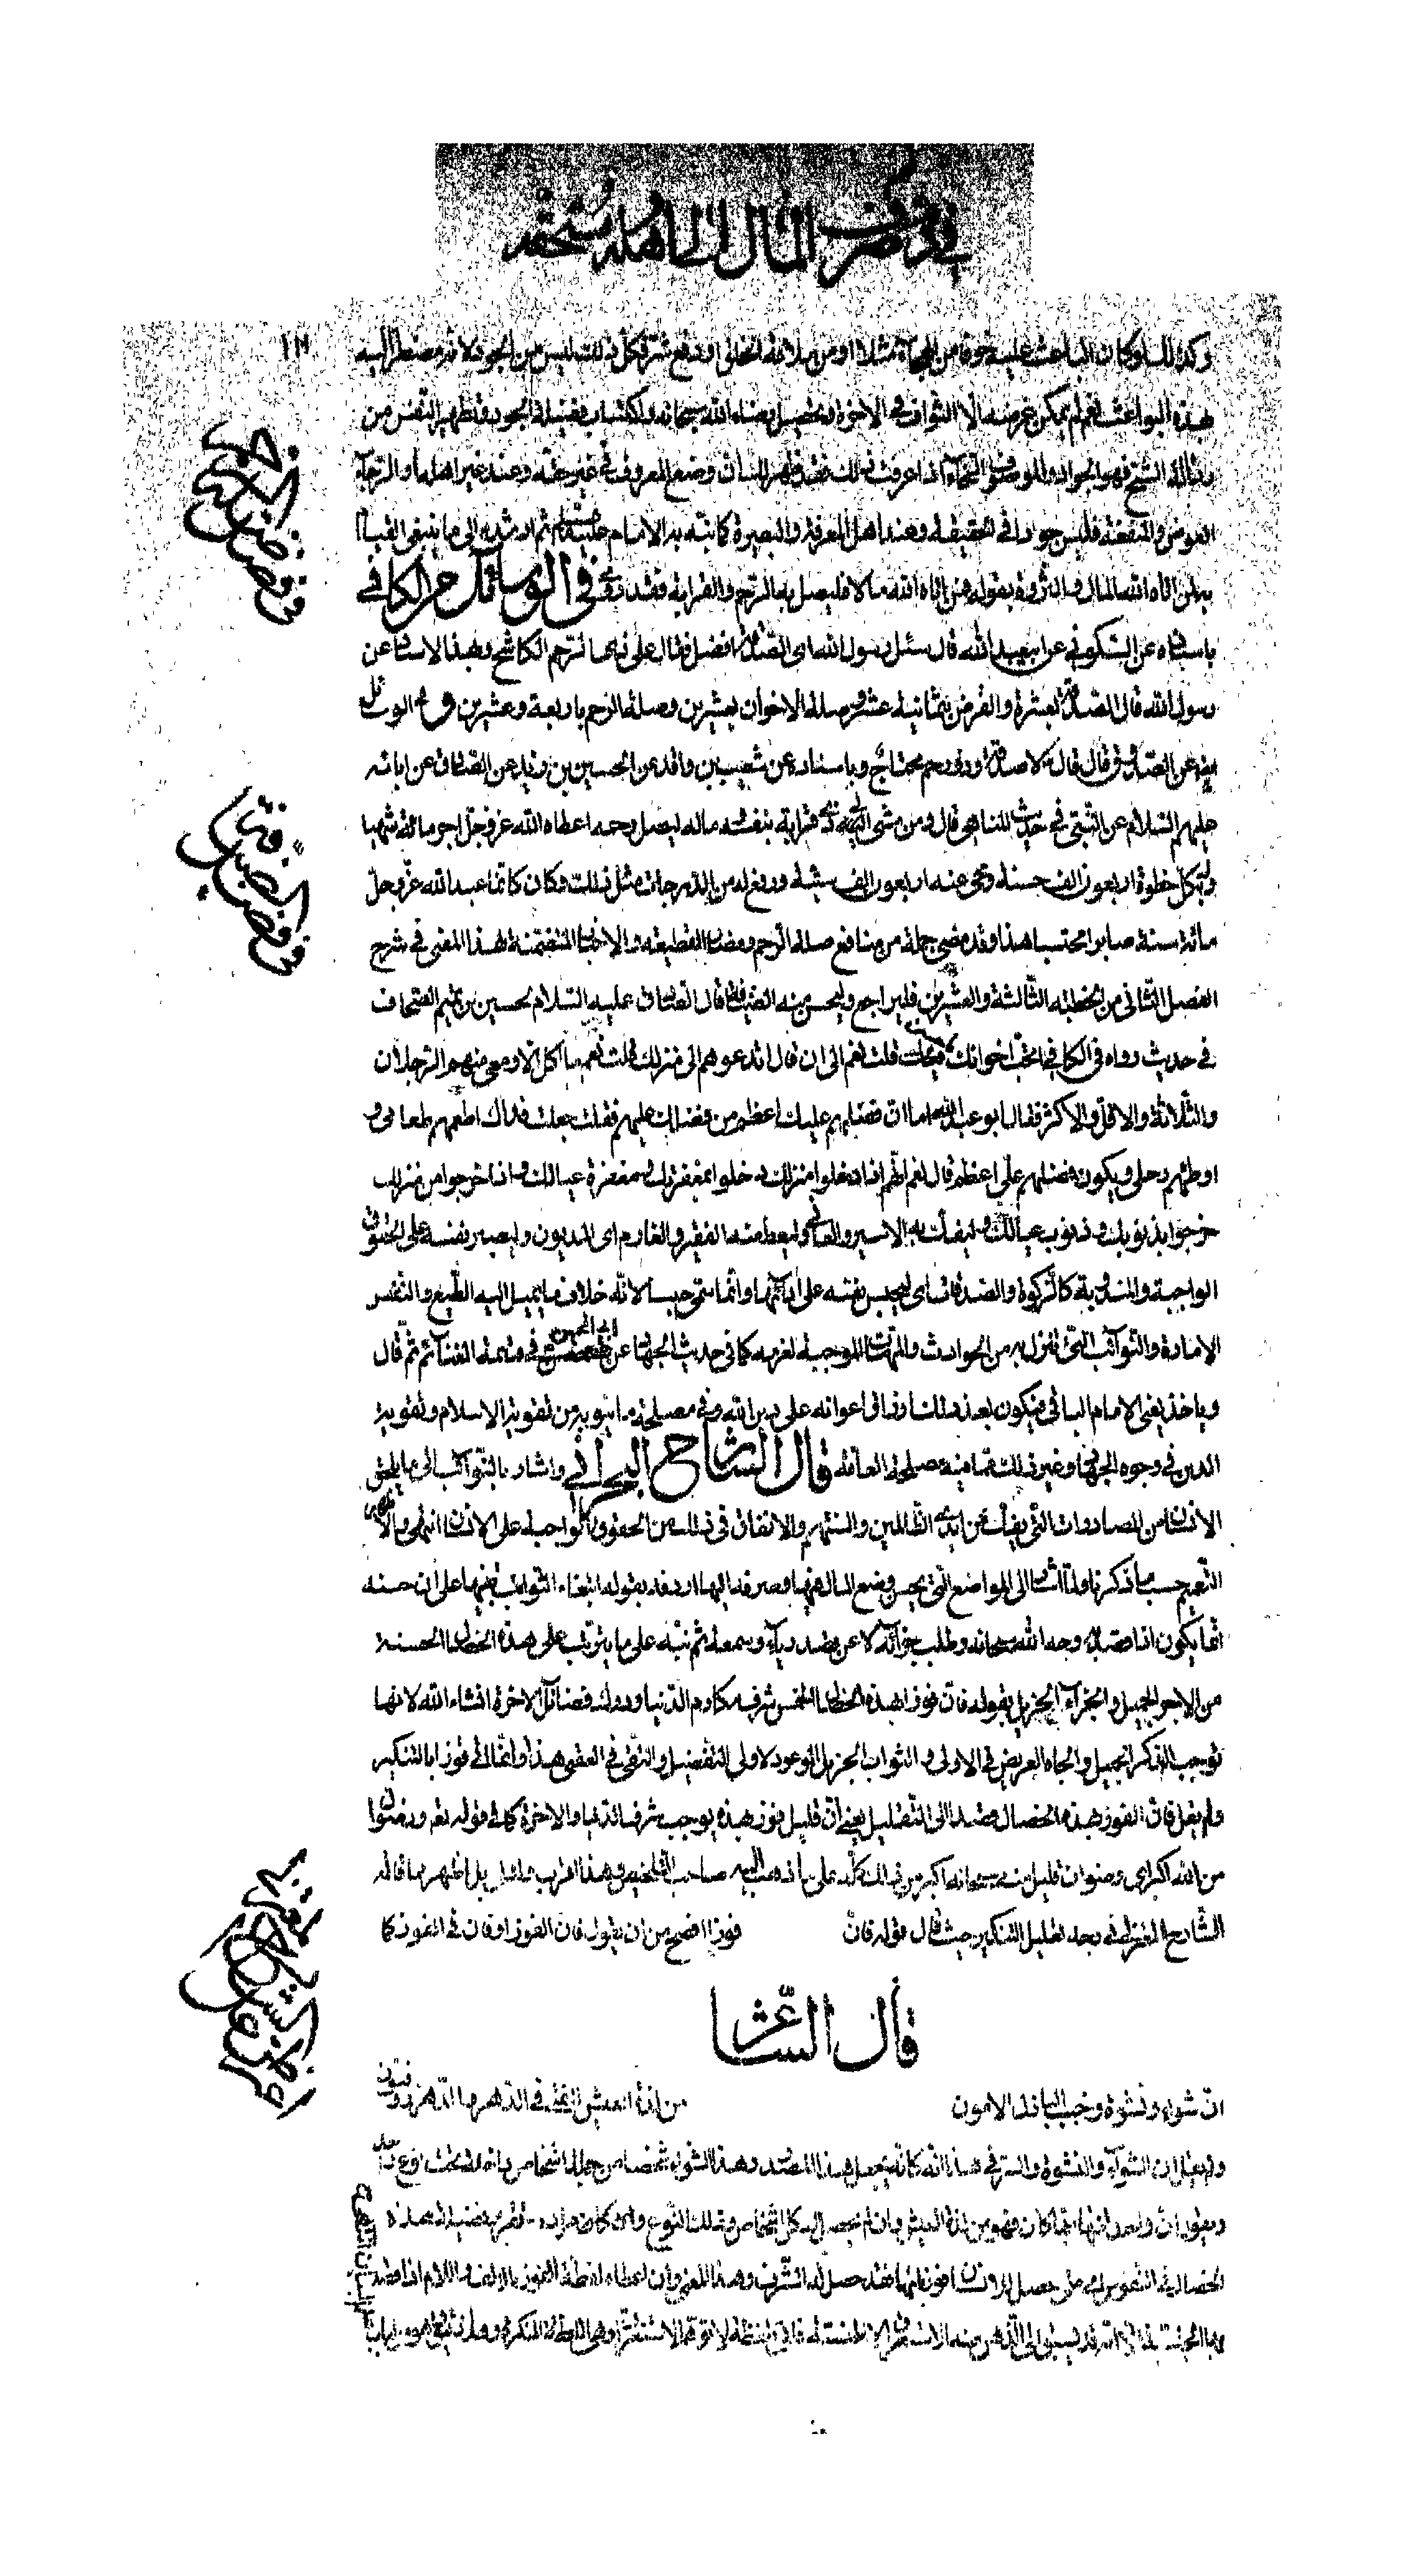 في صرف المال الى اهله و مستحقه
وكذلك لو كان الباعث عليه خوفا من الهجاء مثلا او من ملامة الخلق او دفع شرهم فكل ذلك ليس من الجود لانه مضطر اليه
بهذه البواعث نعم لو لم يكن غرضه الا الثواب في الاخرة وتحصيل رضاء الله سبحانه واكتساب فضيلة الجود وتطهير النفس من
رذالة الشح فهو الجواد والموصوف بالسخاء اذا عرفت ذلك فقد ظهر لك ان وضع المعروف في غير حقه وعند غير اهله او لرجاء
العوض والمنفعة فليس جودا في الحقيقة وعند اهل المعرفة والبصيرة كما نبه به الامام عليه السلام ثم ارشد الى ما ينبغي القيام
به لمن اتاه الله المال والثروة بقوله فمن اتاه الله مالا فليصل به الرحم والقرابة فقد روى في الوسائل من الكافي
باسناده عن السكوني عن ابي عبد الله قال سئل رسول الله اي الصدقة افضل فقال على ذي الرحم الكاشح وبهذا الاسناد عن
رسول الله قال الصدقة بعشرة والقرض بثمانية عشر وصلة الاخوان بعشرين وصلة الرحم باربعة وعشرين وفي الوسائل
ايضا عن الصدوق قال قال لا صدقة وذو رحم محتاج وباسناده عن شعيب بن واقد عن الحسين بن زيد عن الصادق عن ابائه
عليهم السلام عن النبي في حديث المناهي قال ومن مشى الى ذي قرابة بنفسه وماله ليصل رحمه اعطاه الله عز وجل اجر مائة شهيد
وله بكل خطوة اربعون الف حسنة ومحى عنه اربعون الف سيئة ورفع له من الدرجات مثل ذلك وكان كانما عبد الله عز وجل
مائة سنة صابرا محتسبا هذا وقد مضى جملة من منافع صلة الرحم ومضار القطيعة والاخبار المتضمنة لهذا المعنى في شرح
الفصل الثاني من الخطبة الثالثة والعشرين فليراجع وليحسن منه الضيافة قال الصادق عليه السلام لحسين بن نعيم الصحاف
في حديث رواه في الكافي اتحب اخوانك يا حسين قلت نعم الى ان قال اتدعوهم الى منزلك قلت نعم ما اكل الا ومعي منهم الرجلان
والثلاثة والاقل والاكثر فقال ابو عبد الله اما ان فضلهم عليك اعظم من فضلك عليهم فقلت جعلت فداك اطعمهم طعامي و
اوطئهم رحلي ويكون فضلهم علي اعظم قال نعم انهم اذا دخلوا منزلك دخلوا بمغفرتك ومغفرة عيالك واذا خرجوا من منزلك
خرجوا بذنوبك وذنوب عيالك وليفك به الاسير والعاني وليعط منه الفقير والغارم اي المديون وليصبر نفسه على الحقوق
الواجبة والمندوبة كالزكوة والصدقات اي ليحبس نفسه على ادائها وانما سمى حبسا لانه خلاف ما يميل اليه الطبع والنفس
الامارة والنوائب التي تنزل به من الحوادث والمهمات الموجبة لغرمه كما في حديث الجهاد عن ابي الحسن في قسمة الغنائم ثم قال
وياخذ يعني الامام الباقي فيكون بعد ذلك ارزاق اعوانه على دين الله وفي مصلحة ما ينوبه من تقوية الاسلام وتقوية
الدين في وجوه الجهاد وغير ذلك مما فيه مصلحة العامة قال الشارح البحراني واشار بالنوائب الى ما يلحق
الانسان من المصادرات التي يفك بها من ايدي الظالمين والسنتهم والانفاق في ذلك من الحقوق الواجبة على الانسان انتهى والاظهر
التعميم حسب ما ذكرنا ولما اشار الى المواضع التي يحسن وضع المال فيها وصرفه اليها اردفه بقوله ابتغاء الثواب تنبيها على ان حسنه
انما يكون اذا قصد به وجه الله سبحانه وطلب جزائه لا عن قصد رياء وسمعة ثم نبه على ما يترتب على هذه الخصال الحسنة
من الاجر الجميل والجزاء الجزيل بقوله فان فوزا بهذه الخصال الخمس شرف مكارم الدنيا ودرك فضائل الاخرة انشاء الله لانها
توجب الذكر الجميل والجاه العريض في الاولى والثواب الجزيل الموعود لاولى التفضيل والتقى في العقبى هذا وانما اتى فوزا بالتنكير
ولم يقل فان الفوز بهذه الخصال قصدا الى التقليل يعني ان قليل فوز بهذه يوجب شرف الدنيا والاخرة كما في قوله تعم ورضوان
من الله اكبر اي رضوان قليل منه سبحانه اكبر من ذلك كله على ما ذهب اليه صاحب التلخيص وهذا اقرب واظهر مما قاله
الشارح المعتزلي في وجه تعليل التنكير حيث قال قوله فان فوزا افصح من ان يقول فان الفوز او فان في الفوز كما
قال الشاعر
ان شواء ونشوة وخبب البازل الامون من لذة العيش للفتى في الدهر والدهر ذو فنون
ولم يقل ان الشواء والنشوة والسر في هذا انه كانه يجعل هذا الشواء شخصا من جملة اشخاص داخلة تحت نوع واحد
ويقول ان واحدا منها ايها كان فهو من لذة العيش وان لم يحصل له كل اشخاص ذلك النوع ومراده تقرير فضيلة هذه
الخصال في النفوس اي متى حصل للانسان فوز ما بها فقد حصل له الشرف وهذا المعنى وان اعطاه لفظة الفوز بالالف واللام اذا قصد
بها الجنسية الا انه قد يسبق الى الذهن منه الاستغراق لا الجنسية فاتى بلفظة لا توهم الاستغراق وهي اللفظة المنكرة وهذا دقيق وهو من لباب